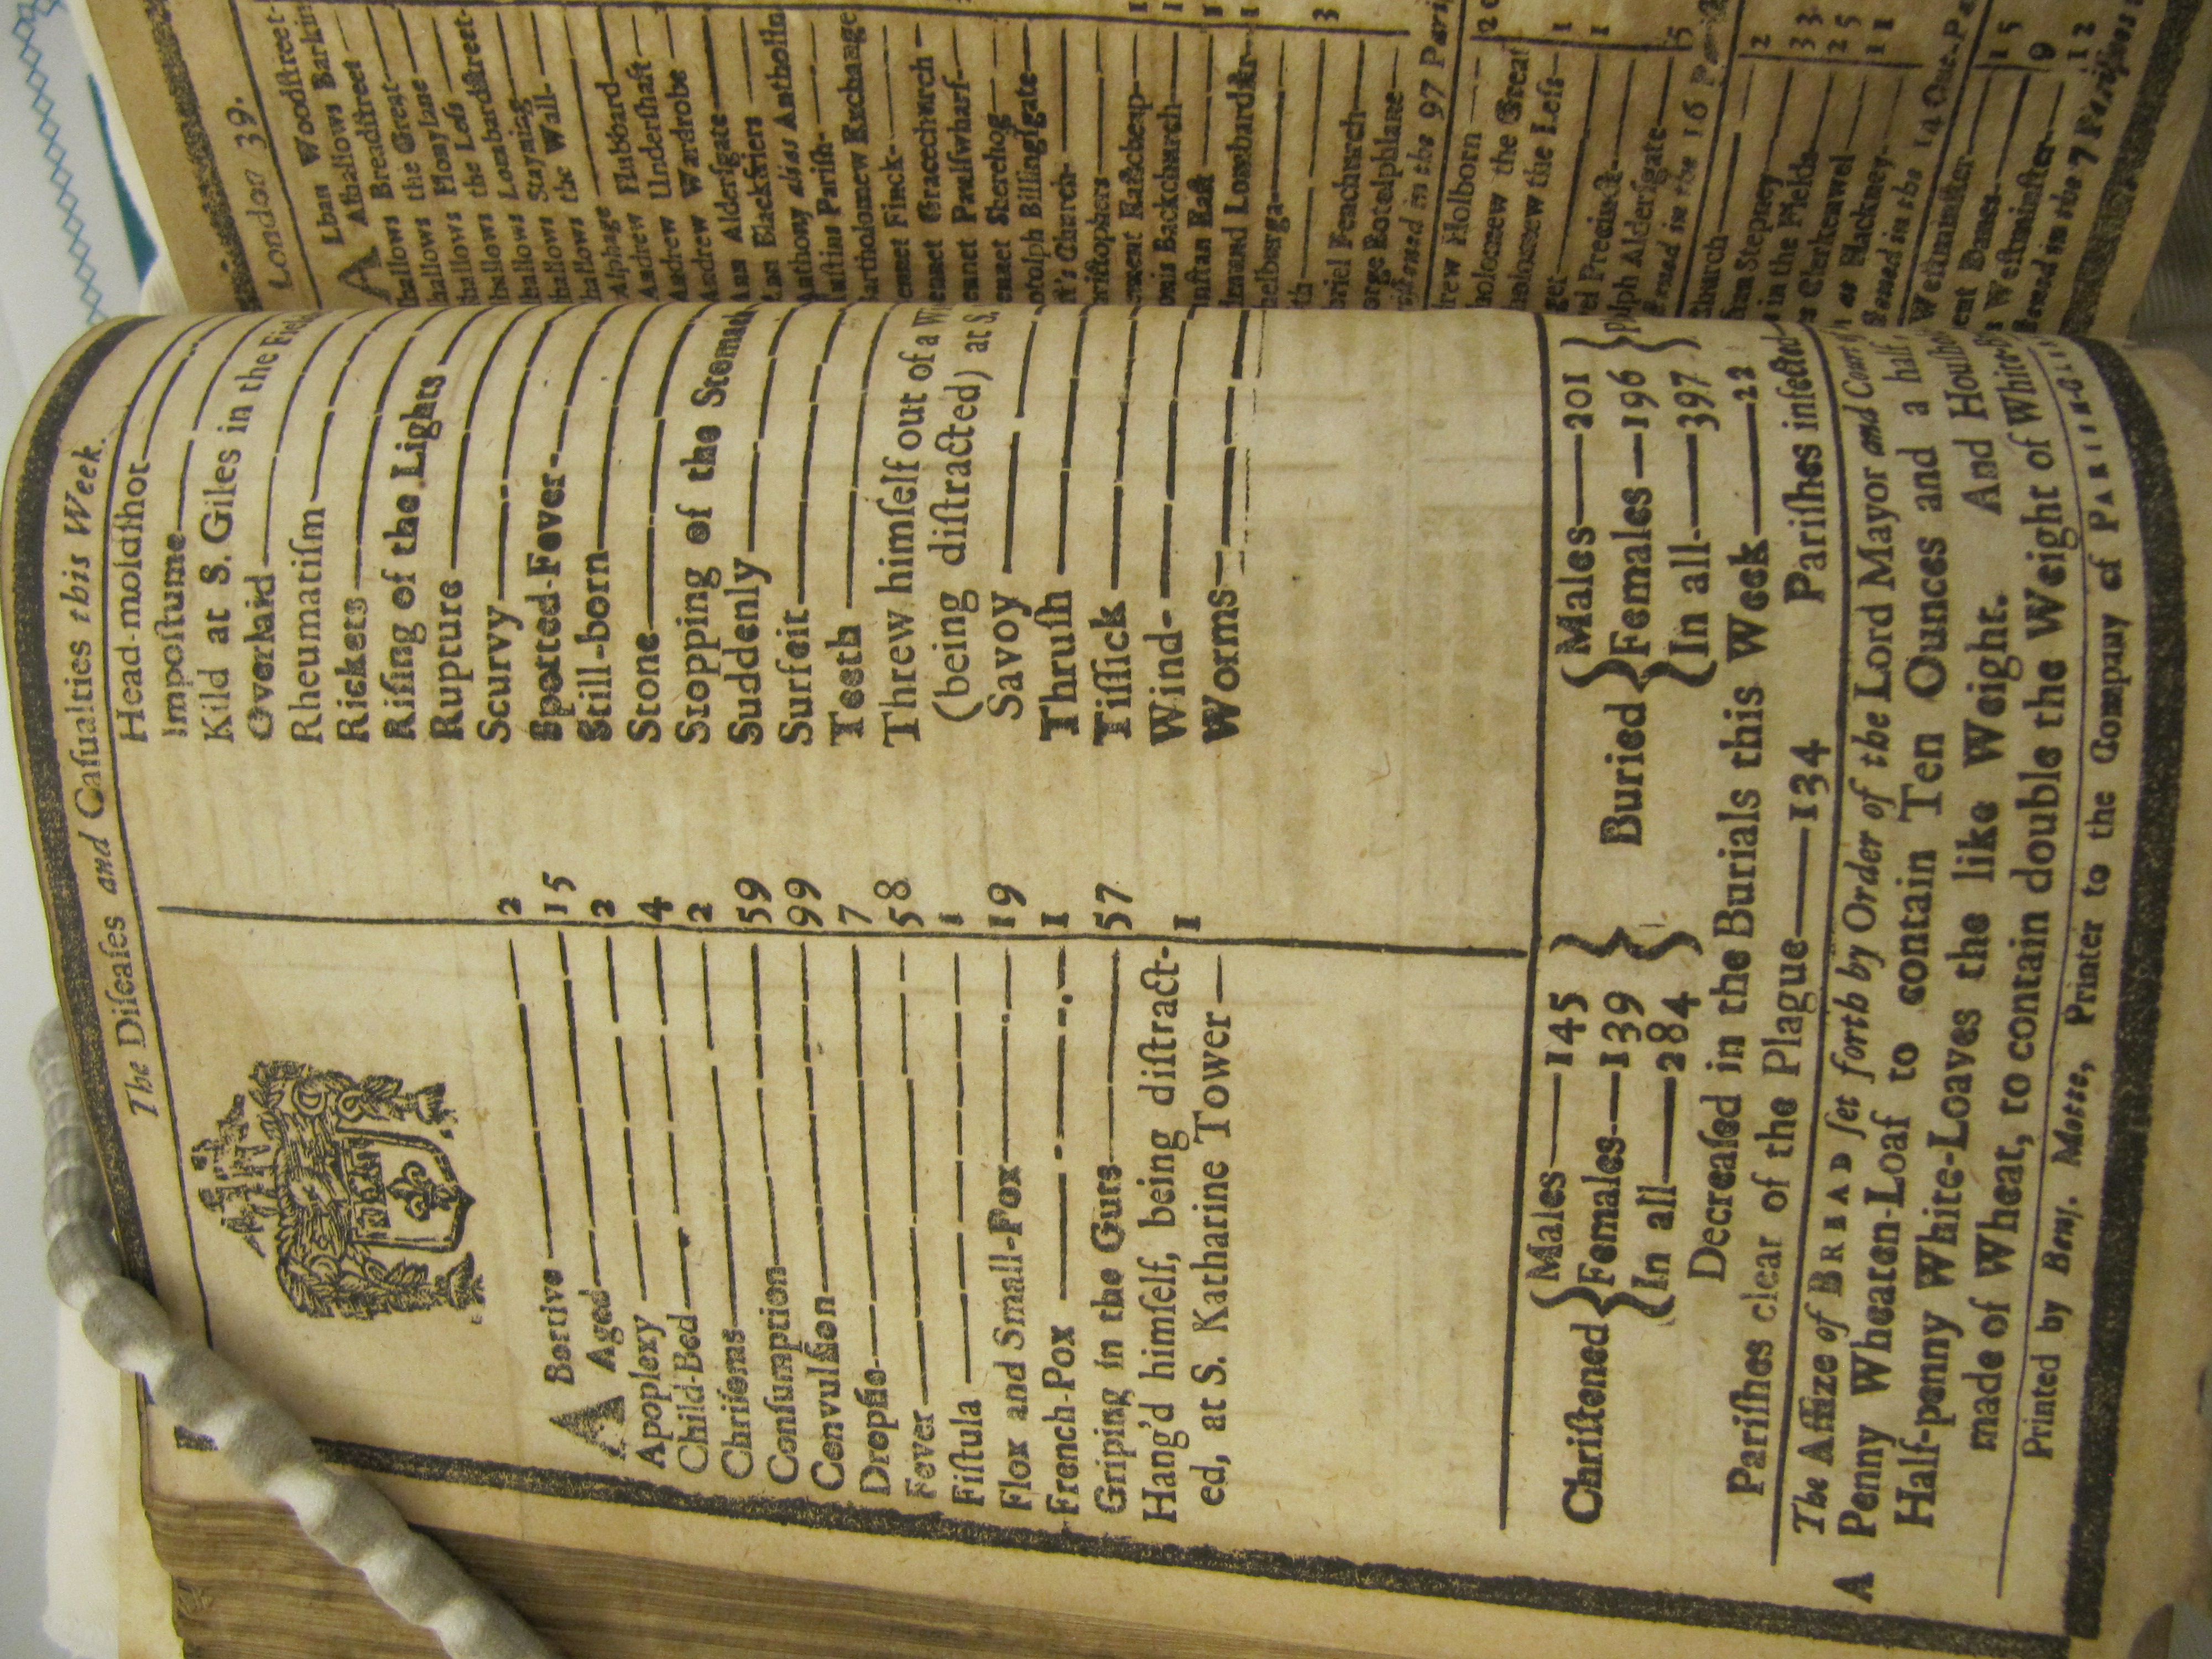 The Diſeaſes and Caſualties this Week.
A Bortive 2
Aged 15
Apoplexy 2
Child-Bed 4
Chriſoms 2
Conſumption 59
Convulſion 99
Dropſie 7
Fever 58
Fiſtula 1
Flox and Small-Pox 19
French-Pox 1
Griping in the Guts 57
Hang'd himſelf, being diſtract-
ed, at S. Katharine Tower 1
Head-moldſhot
Impoſtume
Kild at S. Giles in the
Overlaid
Rheumatiſm
Rickets
Riſing of the Lights
Rupture
Scurvy
Spotted-Fever
Still-born
Stone
Stopping of the Stomach
Suddenly
Surfeit
Teeth
Threw himſelf out of a
(being diſtracted) at S.
Savoy
Thruſh
Tiſſick
Wind
Worms
Chriſtened { Males 145 Females 139 In all 284 }
Buried { Males 201 Females 196 In all 397 }
Decreaſed in the Burials this Week 22
Pariſhes clear of the Plague 134 Pariſhes infected
The Aſſize of BREAD ſet forth by Order of the Lord Mayor and Court
A Penny Wheaten-Loaf to contain Ten Ounces and a half,
Half-penny White-Loaves the like Weight. And
made of Wheat, to contain double the Weight of White
Printed by Benj. Motte, Printer to the Company of
London 39.
A Lban Woodſtreet
Alhallows Barkin
Alhallows Breadſtreet
hallows the Great
hallows Honylane
hallows the Leſs
hallows Lombardſtreet
hallows Stayning
hallows the Wall
Alphage
Andrew Hubbard
Andrew Underſhaft
Andrew Wardrobe
Ann Alderſgate
Ann Blackfriers
Anthony alias Antholin
Auſtins Pariſh
artholomew Exchange
ennet Finck
ennet Gracechurch
ennet Paulſwharf
ennet Sherehog
otolph Billingſgate
Church
hriſtophers
ement Eaſtcheap 1
onis Backchurch 1
unſtan Eaſt 1
dmund Lombardſtr 1
helburga
th
briel Fenchurch 3
orge Botolphlane
in the 97
drew Holborn
holomew the Great
tholomew the Leſs 1
get
el Precinct 1
olph Alderſgate 5
in the 16
church
ſtan Stepney 2
s in the Fields 33
s Clerkenwel 25
at Hackney 11
in the 14
Weſtminſter
ent Danes 15
Weſtminſter 9
in the 7 Pariſhes 12